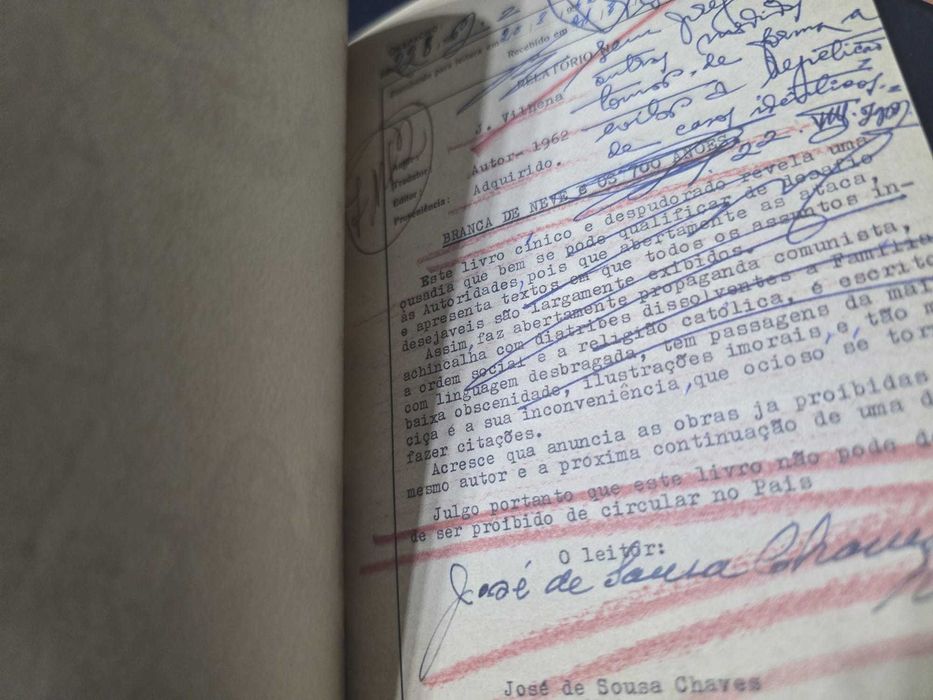 Recebido em
RELATÓRIO Nº
J. Vilhena
Autor- 1962
Autor:
Tradutor:
Editor:
Adquirido.
Proveniência:
outras
de forma a
evitar a repetição
de casos idênticos.
BRANCA DE NEVE E OS 700 ANÕES
Este livro cínico e despudorado revela uma
ousadia que bem se pode qualificar de desafio
às Autoridades, pois que abertamente as ataca,
e apresenta textos em que todos os assuntos in-
desejaveis são largamente exibidos.
Assim, faz abertamente propaganda comunista,
achincalha com diatribes dissolventes a Família
a ordem social e a religião católica, é escrito
com linguagem desbragada, tem passagens da mai
baixa obscenidade, ilustrações imorais e, tão m
ciça é a sua inconveniência, que ocioso se tor
fazer citações.
Acresce qua anuncia as obras ja proibidas
mesmo autor e a próxima continuação de uma d
Julgo portanto que este livro não pode de
de ser proibido de circular no País
O leitor:
José de Sousa Chaves
José de Sousa Chaves